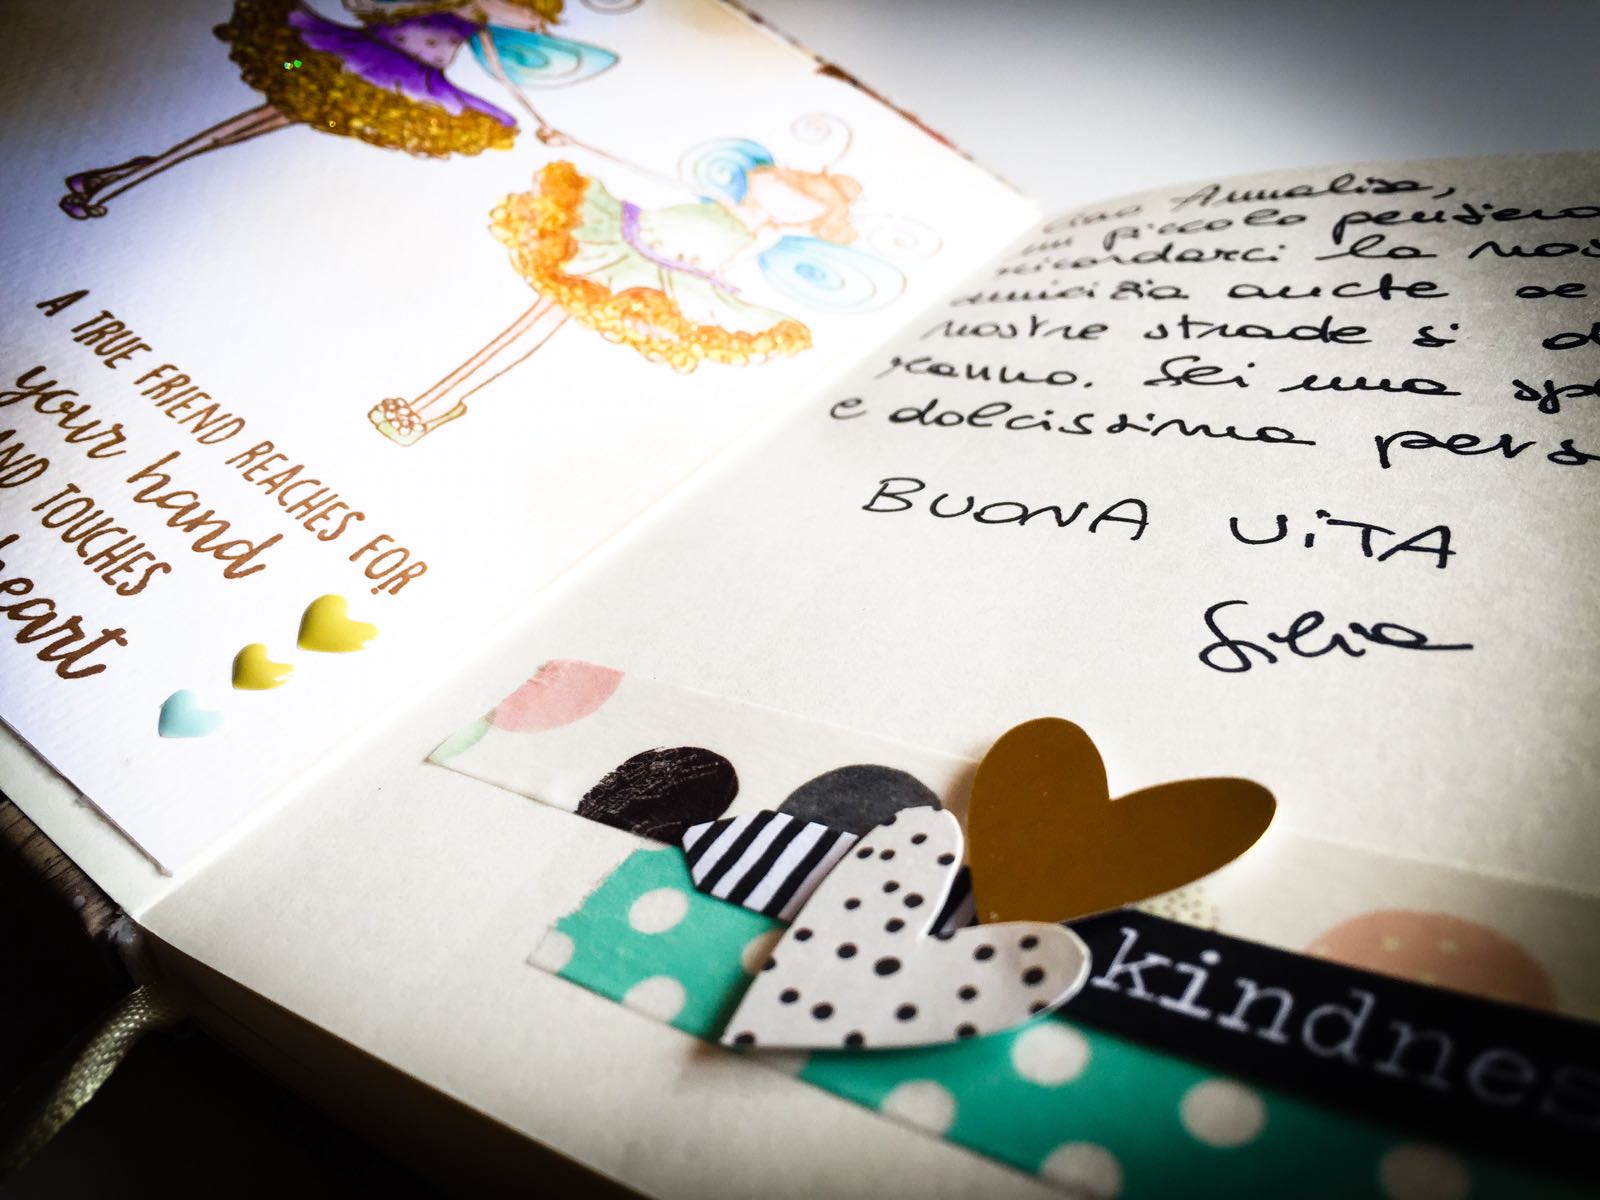 A TRUE FRIEND REACHES FOR
your hand
AND TOUCHES
heart
ciao Annalisa,
un piccolo pensiero
ricordarci la nos
amicizia anche se
nostre strade si d
ranno. Sei una sple
e dolcissima perso
BUONA VITA
Silvia
kindnes